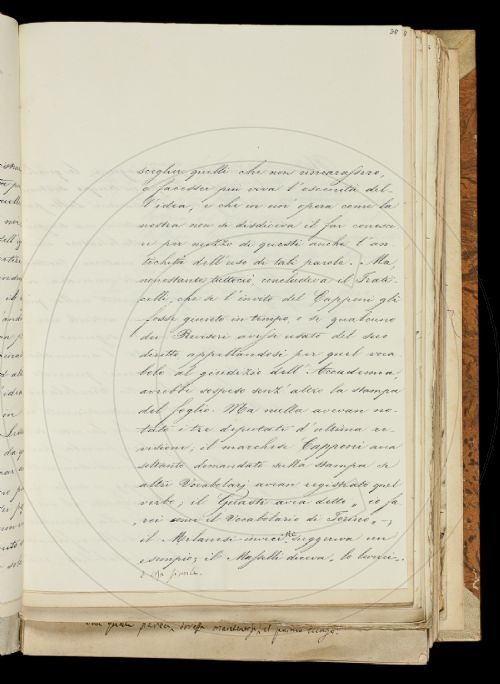 scegliere quelli che non rincarassero,
o facesser più viva l'oscenità del-
l'idea, e che in un'opera come la
nostra non si disdiceva il far conosce-
re per mezzo di questi anche l'an-
tichità dell'uso di tali parole. Ma,
nonostante tuttociò, concludeva il Frati-
celli, che se l'invito del Capponi gli
fosse giunto in tempo, e se qualcuno
dei Revisori avesse usato del suo
diritto appellandosi per quel voca-
bolo al giudizio dell'Accademia,
avrebbe sospeso senz'altro la stampa
del foglio. Ma nulla avevan no-
tato i tre deputati d'ultima re-
visione; il marchese Capponi avea
soltanto domandato sulla stampa se
altri Vocabolarj avean registrato quel
verbo; il Guasti avea detto „ io fa-
„ rei come il Vocabolario di Torino „;
il Milanesi invece ne suggeriva un
esempio; il Masselli diceva „ lo